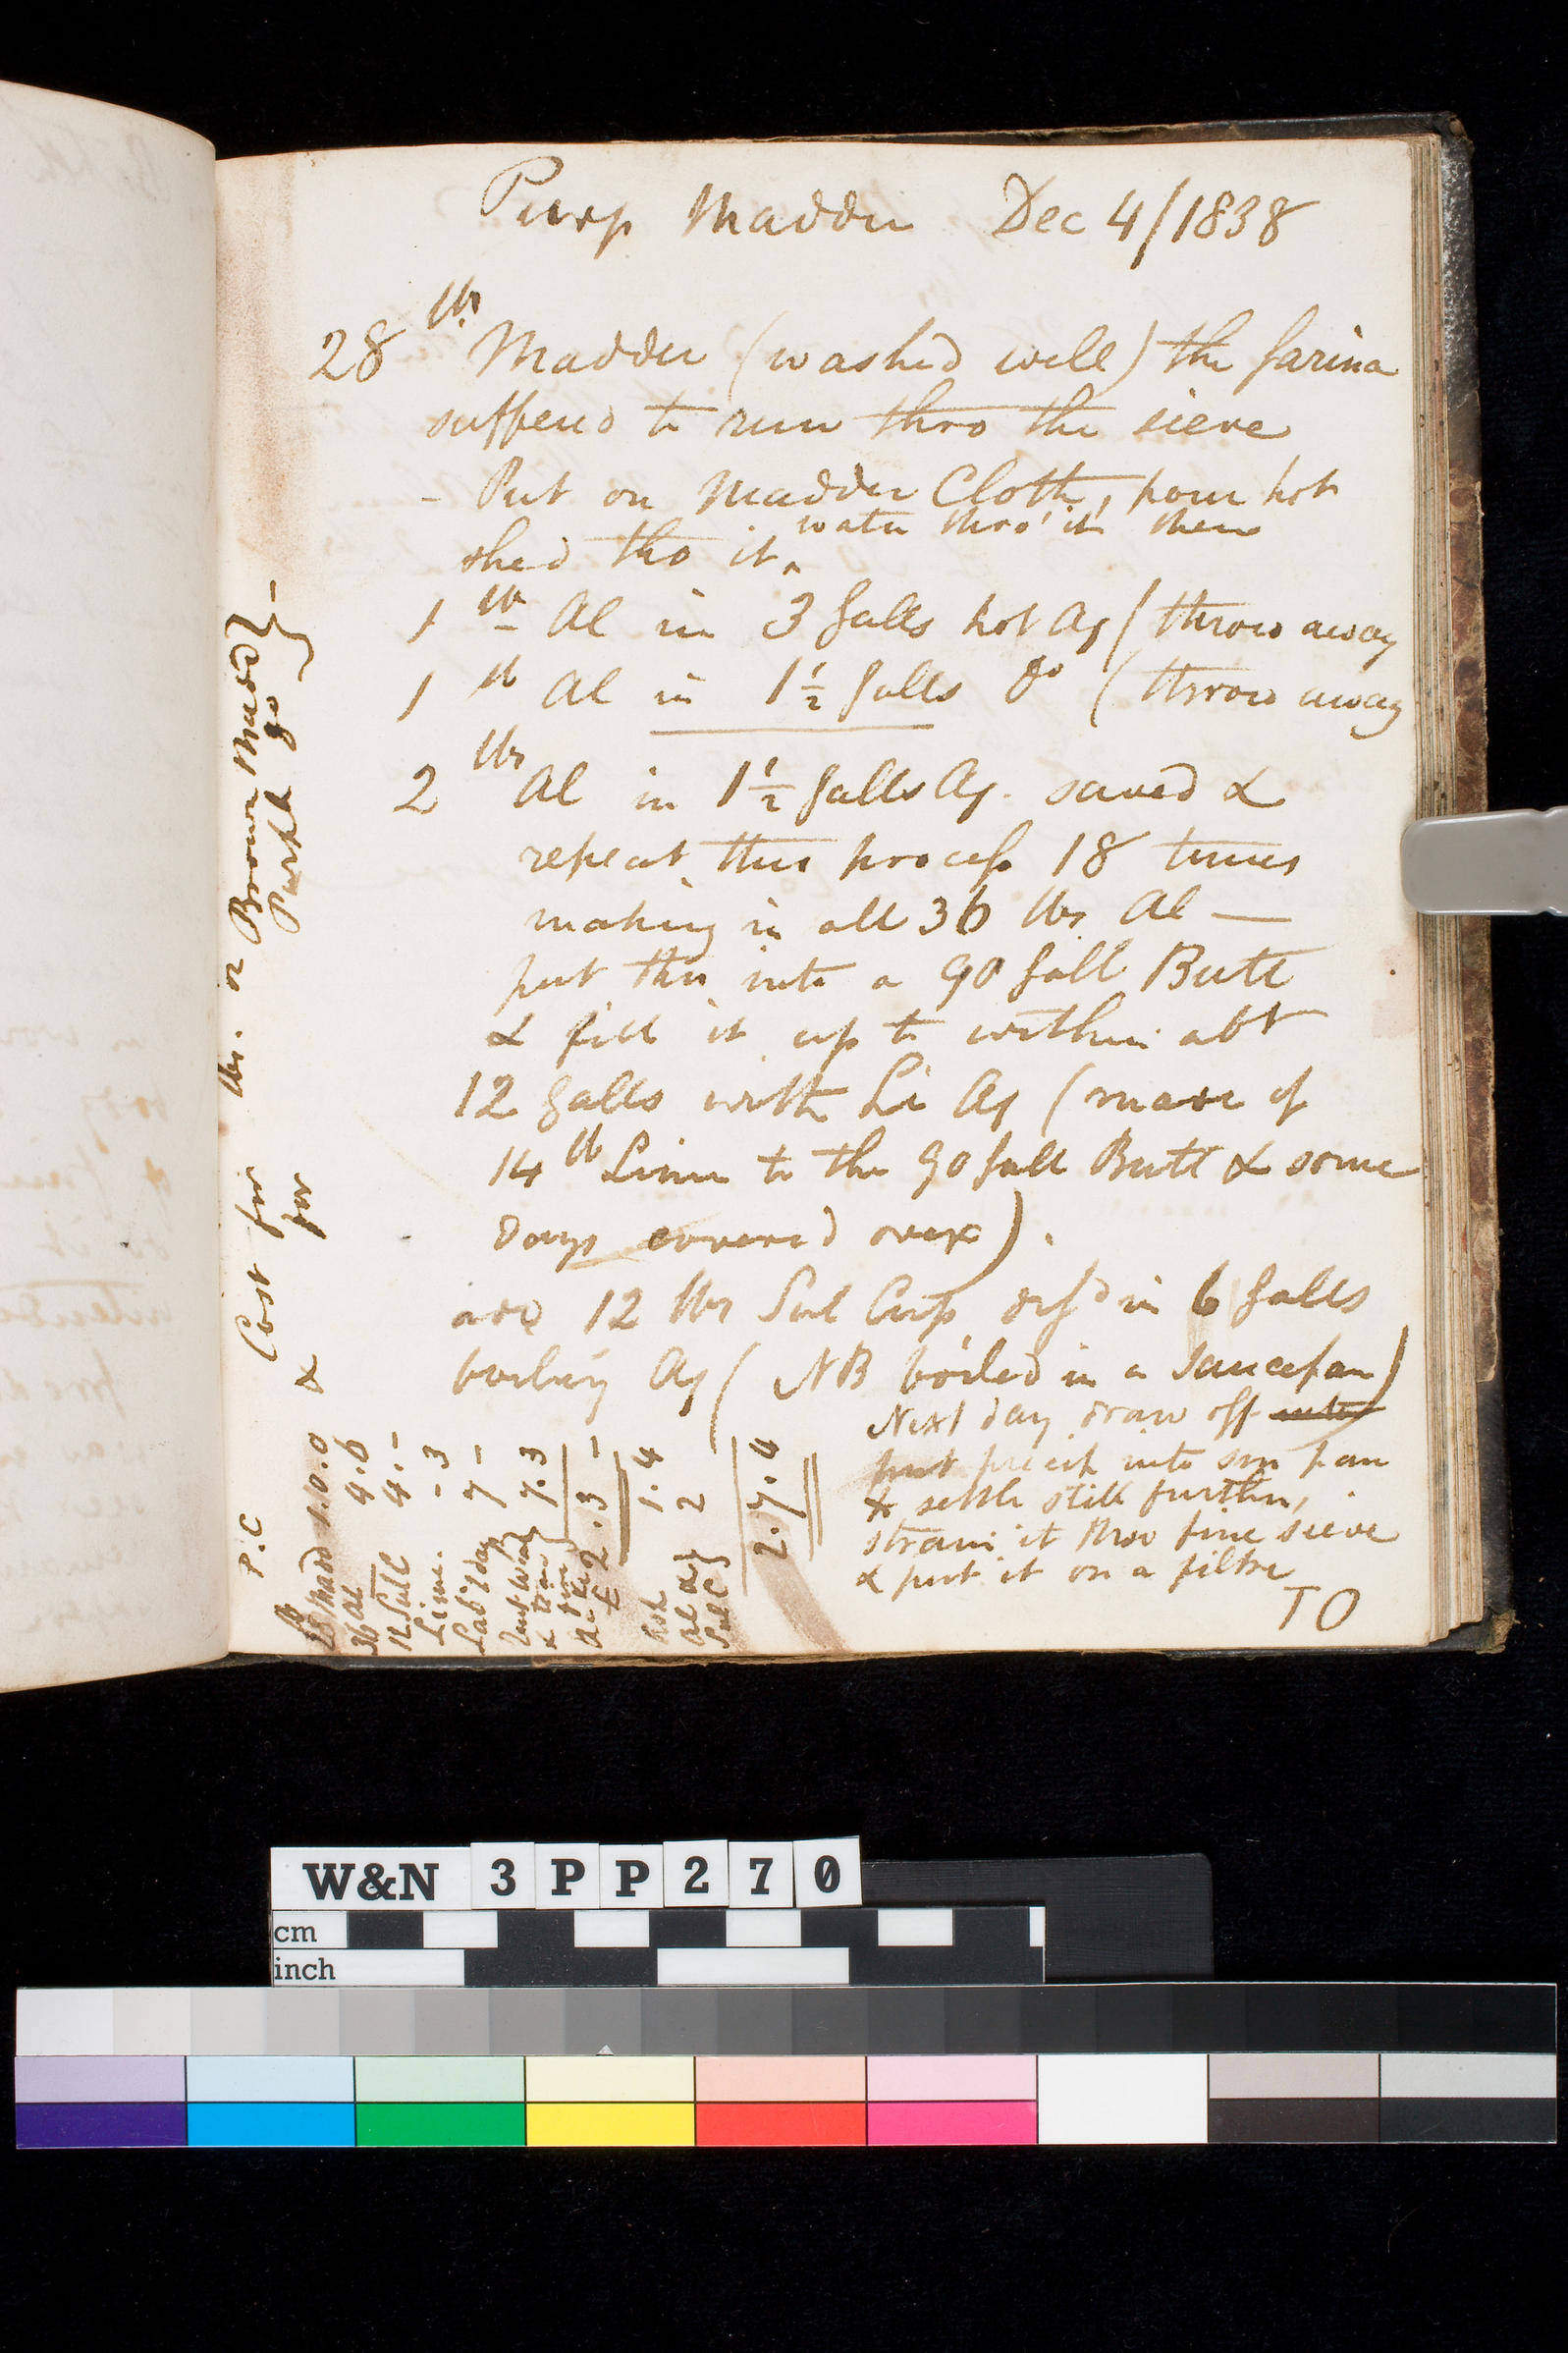 Purp Madder Dec 4/1838
28 lbs Madder (washed well) the farina
suffered to run thro the sieve
- Put on Madder Cloth, pour hot
water thro' it then
shed tho it
1 lb Al in 3 galls hot Aq (throw away
1 lb Al in 1½ galls Do (throw away
2 lbs Al in 1½ galls Aq. saved &
repeat this process 18 times
making in all 36 lbs Al —
put this into a 90 gall Butt
& fill it up to within abt
12 galls with Li Aq (made of
14 lb Lime to the 90 gall Butt & some
Days covered over).
add 12 lbs Sul Cup dissd in 6 galls
boiling Aq (NB boiled in a saucepan)
Next day draw off
put precip into sm pan
& settle still further,
strain it thro fine sieve
& put it on a filtre
TO
P.C & Cost for lbs. or Brown Madd }
for Purple Do } -
28 Madd 1.0.0
36 Al 9.6
12 Sul C 4.-
Lime. - 3
Labr 2 day 7 -
7.3
£ 2.3 -
Ash 1.4
Al & } 2
Sul C }
2.7.4
W&N 3PP270
cm
inch